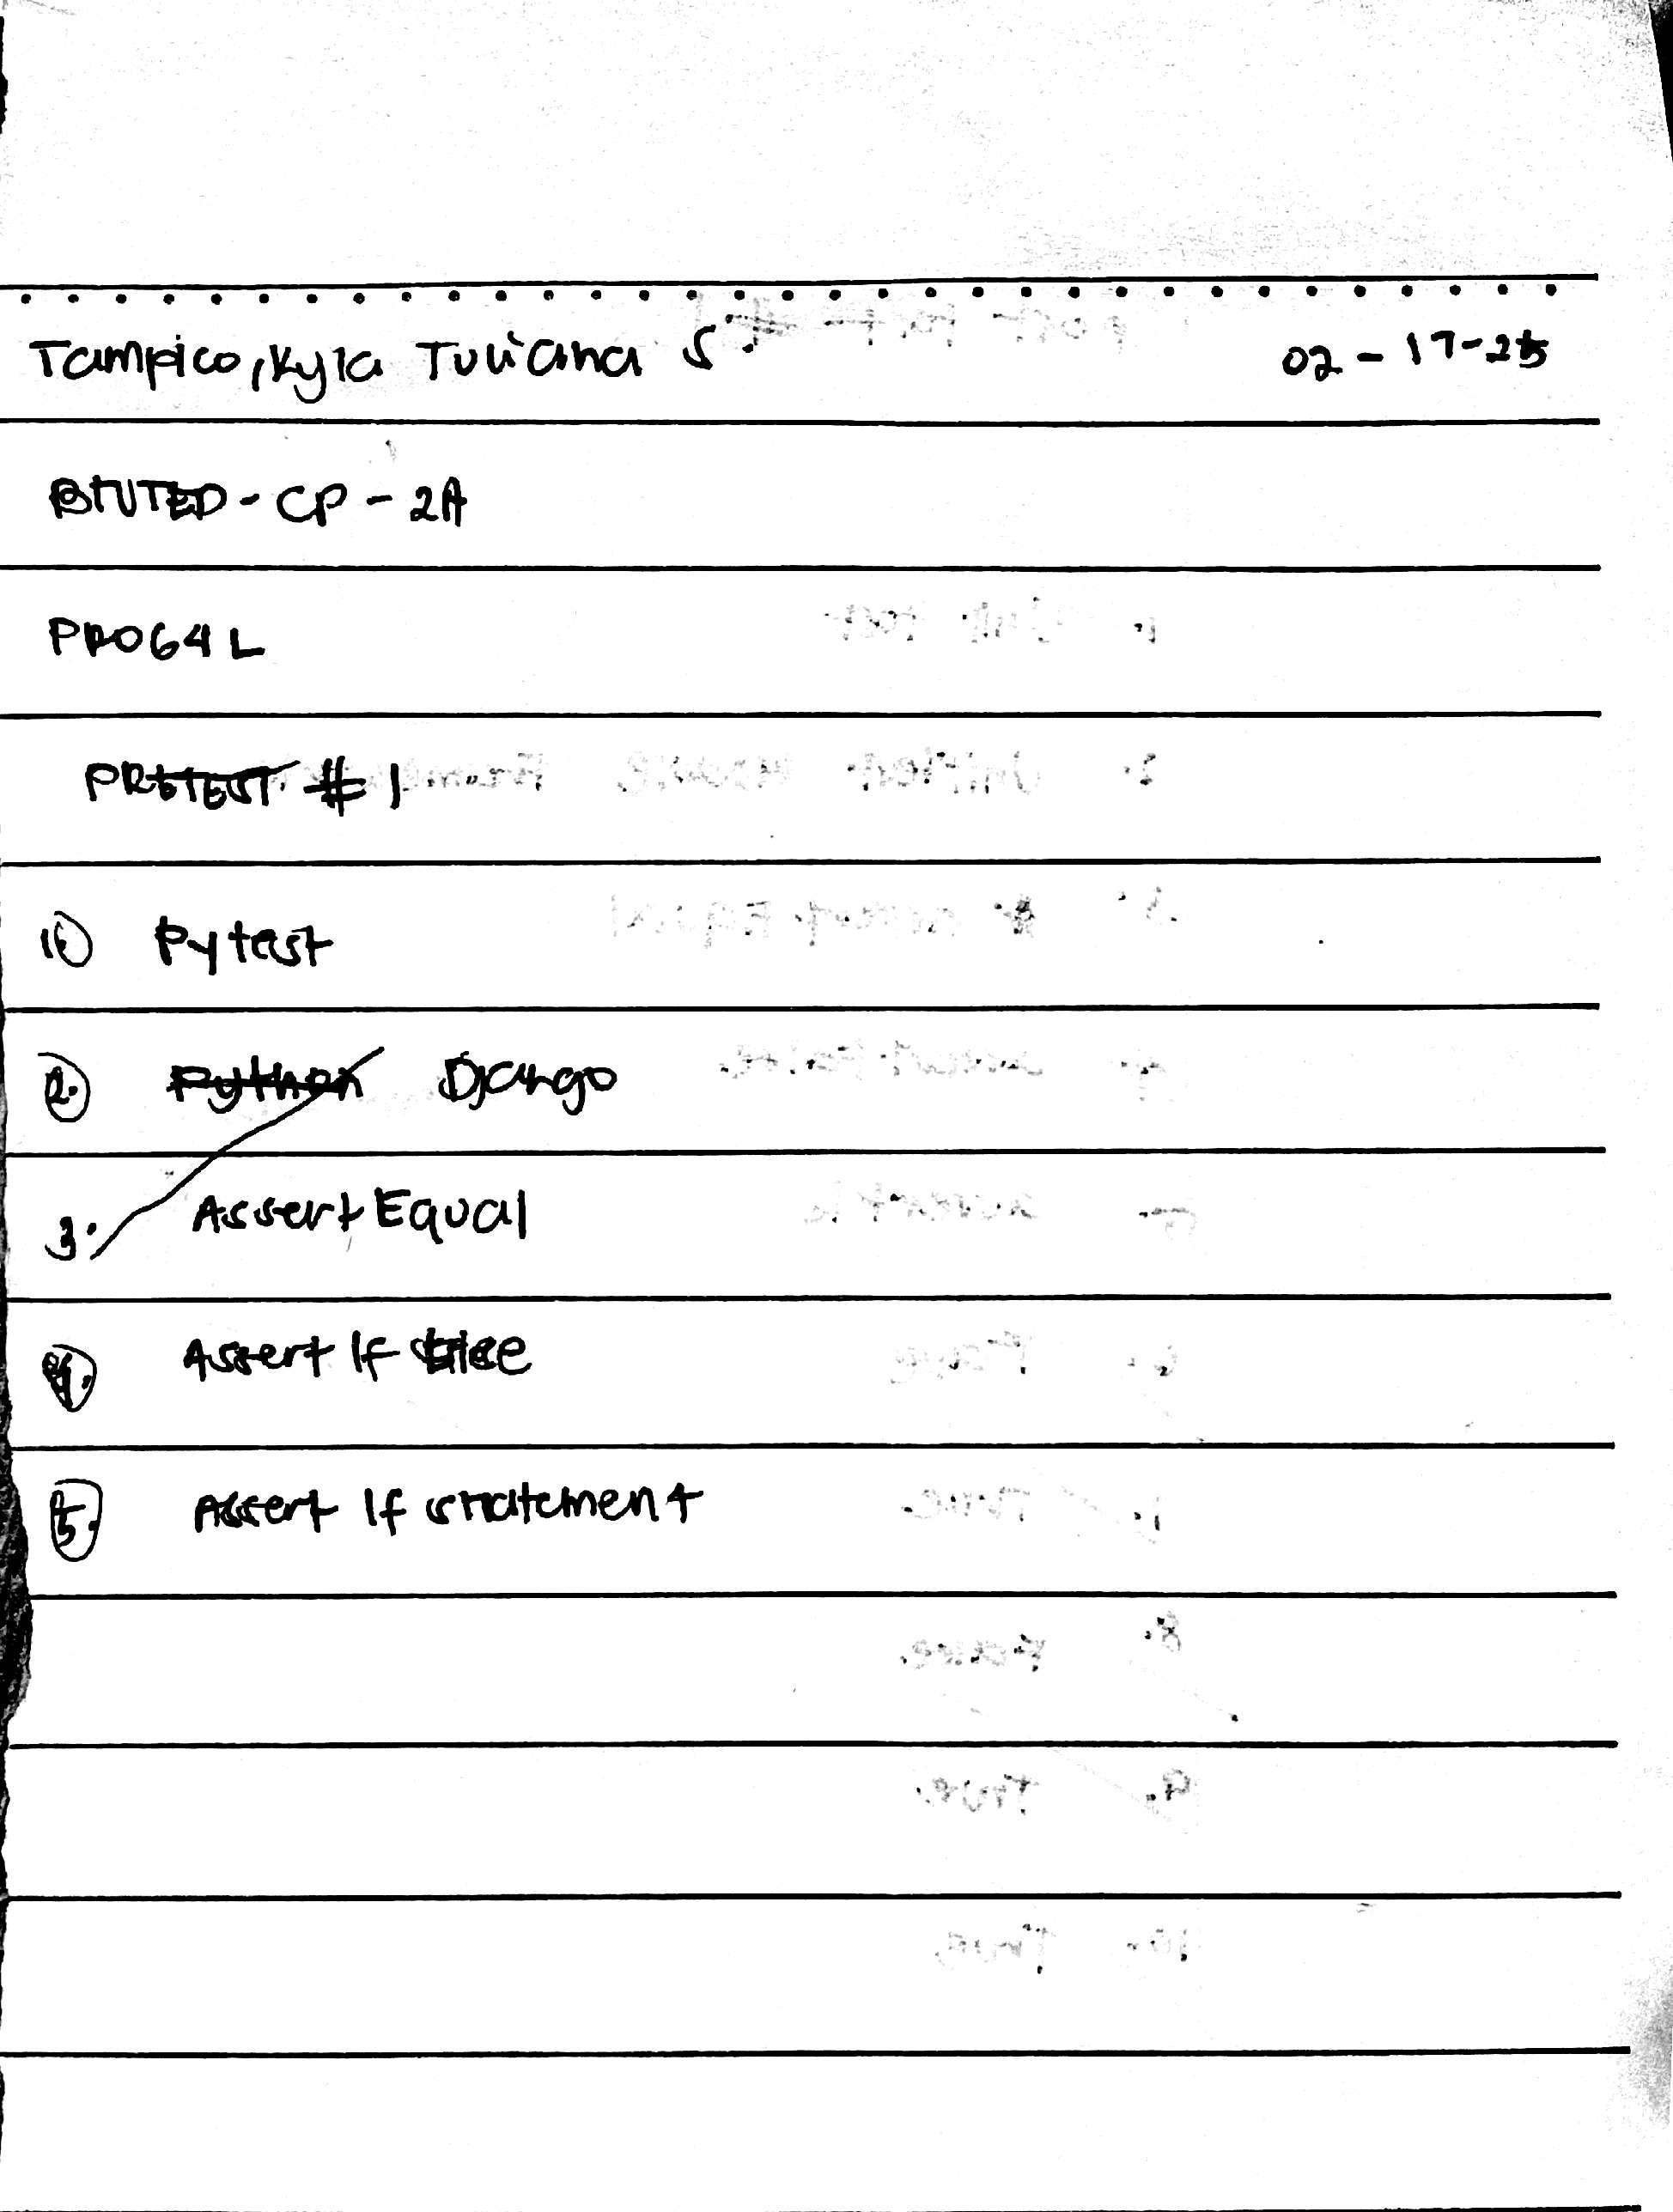 Tampico, Kyla Juliana S. 02-17-25
BTVTED-CP-2A
PROG4L
PRETEST #1
1. Pytest
2. Python Django
3. Assert Equal
4. Assert If
5. Assert If statement